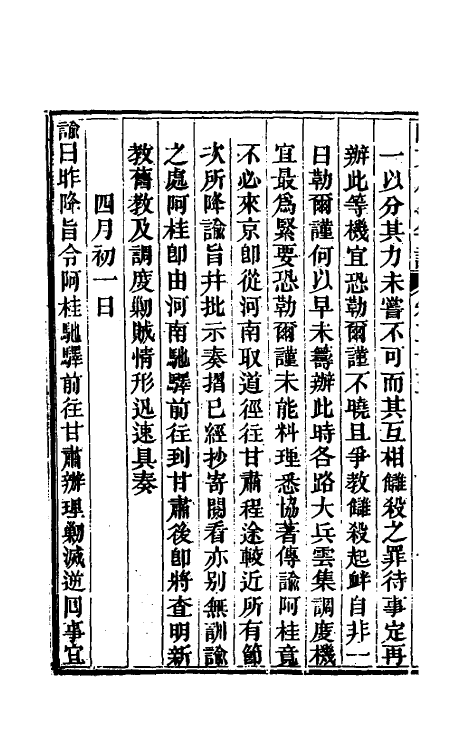 一以分其力未嘗不可而其互相讎殺之罪待事定再
辦此等機宜恐勒爾謹不曉且爭教讎殺起衅自非一
日勒爾謹何以早未籌辦此時各路大兵雲集調度機
宜最爲緊要恐勒爾謹未能料理悉協著傳諭阿桂竟
不必來京卽從河南取道徑往甘肅程途較近所有節
次所降諭旨并批示奏摺已經抄寄閱看亦別無訓諭
之處阿桂卽由河南馳驛前往到甘肅後卽將查明新
教舊教及調度勦賊情形迅速具奏
四月初一日
諭曰昨降旨令阿桂馳驛前往甘肅辦理勦滅逆回事宜